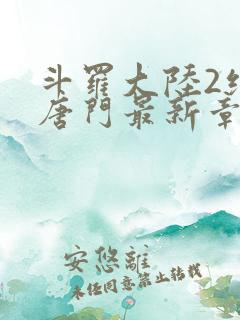 斗羅大陸2絕
唐門最新章
安悠離
未经同意禁止转载